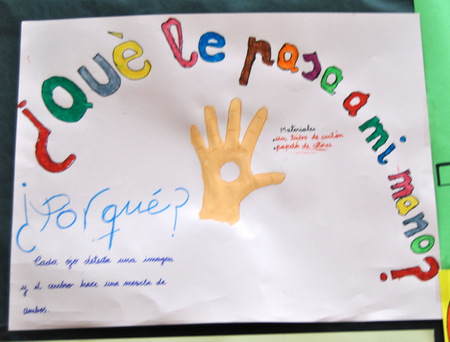 ¿Què le pasa a mi mano?
Materiales
• Un tubo de cartón
• papel de colores
¿Porqué?
Cada ojo detecta una imagen
y el cerebro hace una mezcla de
ambos.